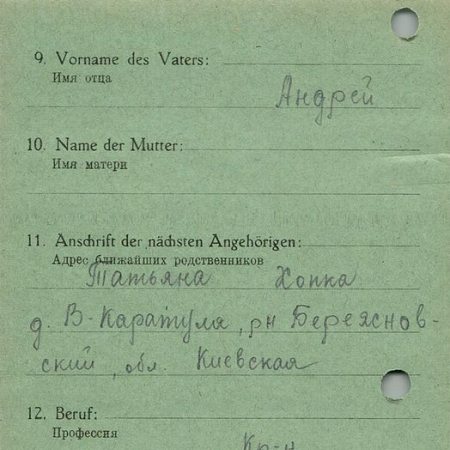 9. Vorname des Vaters:
Имя отца
Андрей
10. Name der Mutter:
Имя матери
11. Anschrift der nächsten Angehörigen:
Адрес ближайших родственников
Татьяна Хопка
д. В-Каратуля, рн Береяснов-
ский, обл. Киевская
12. Beruf:
Профессия
Кр-н